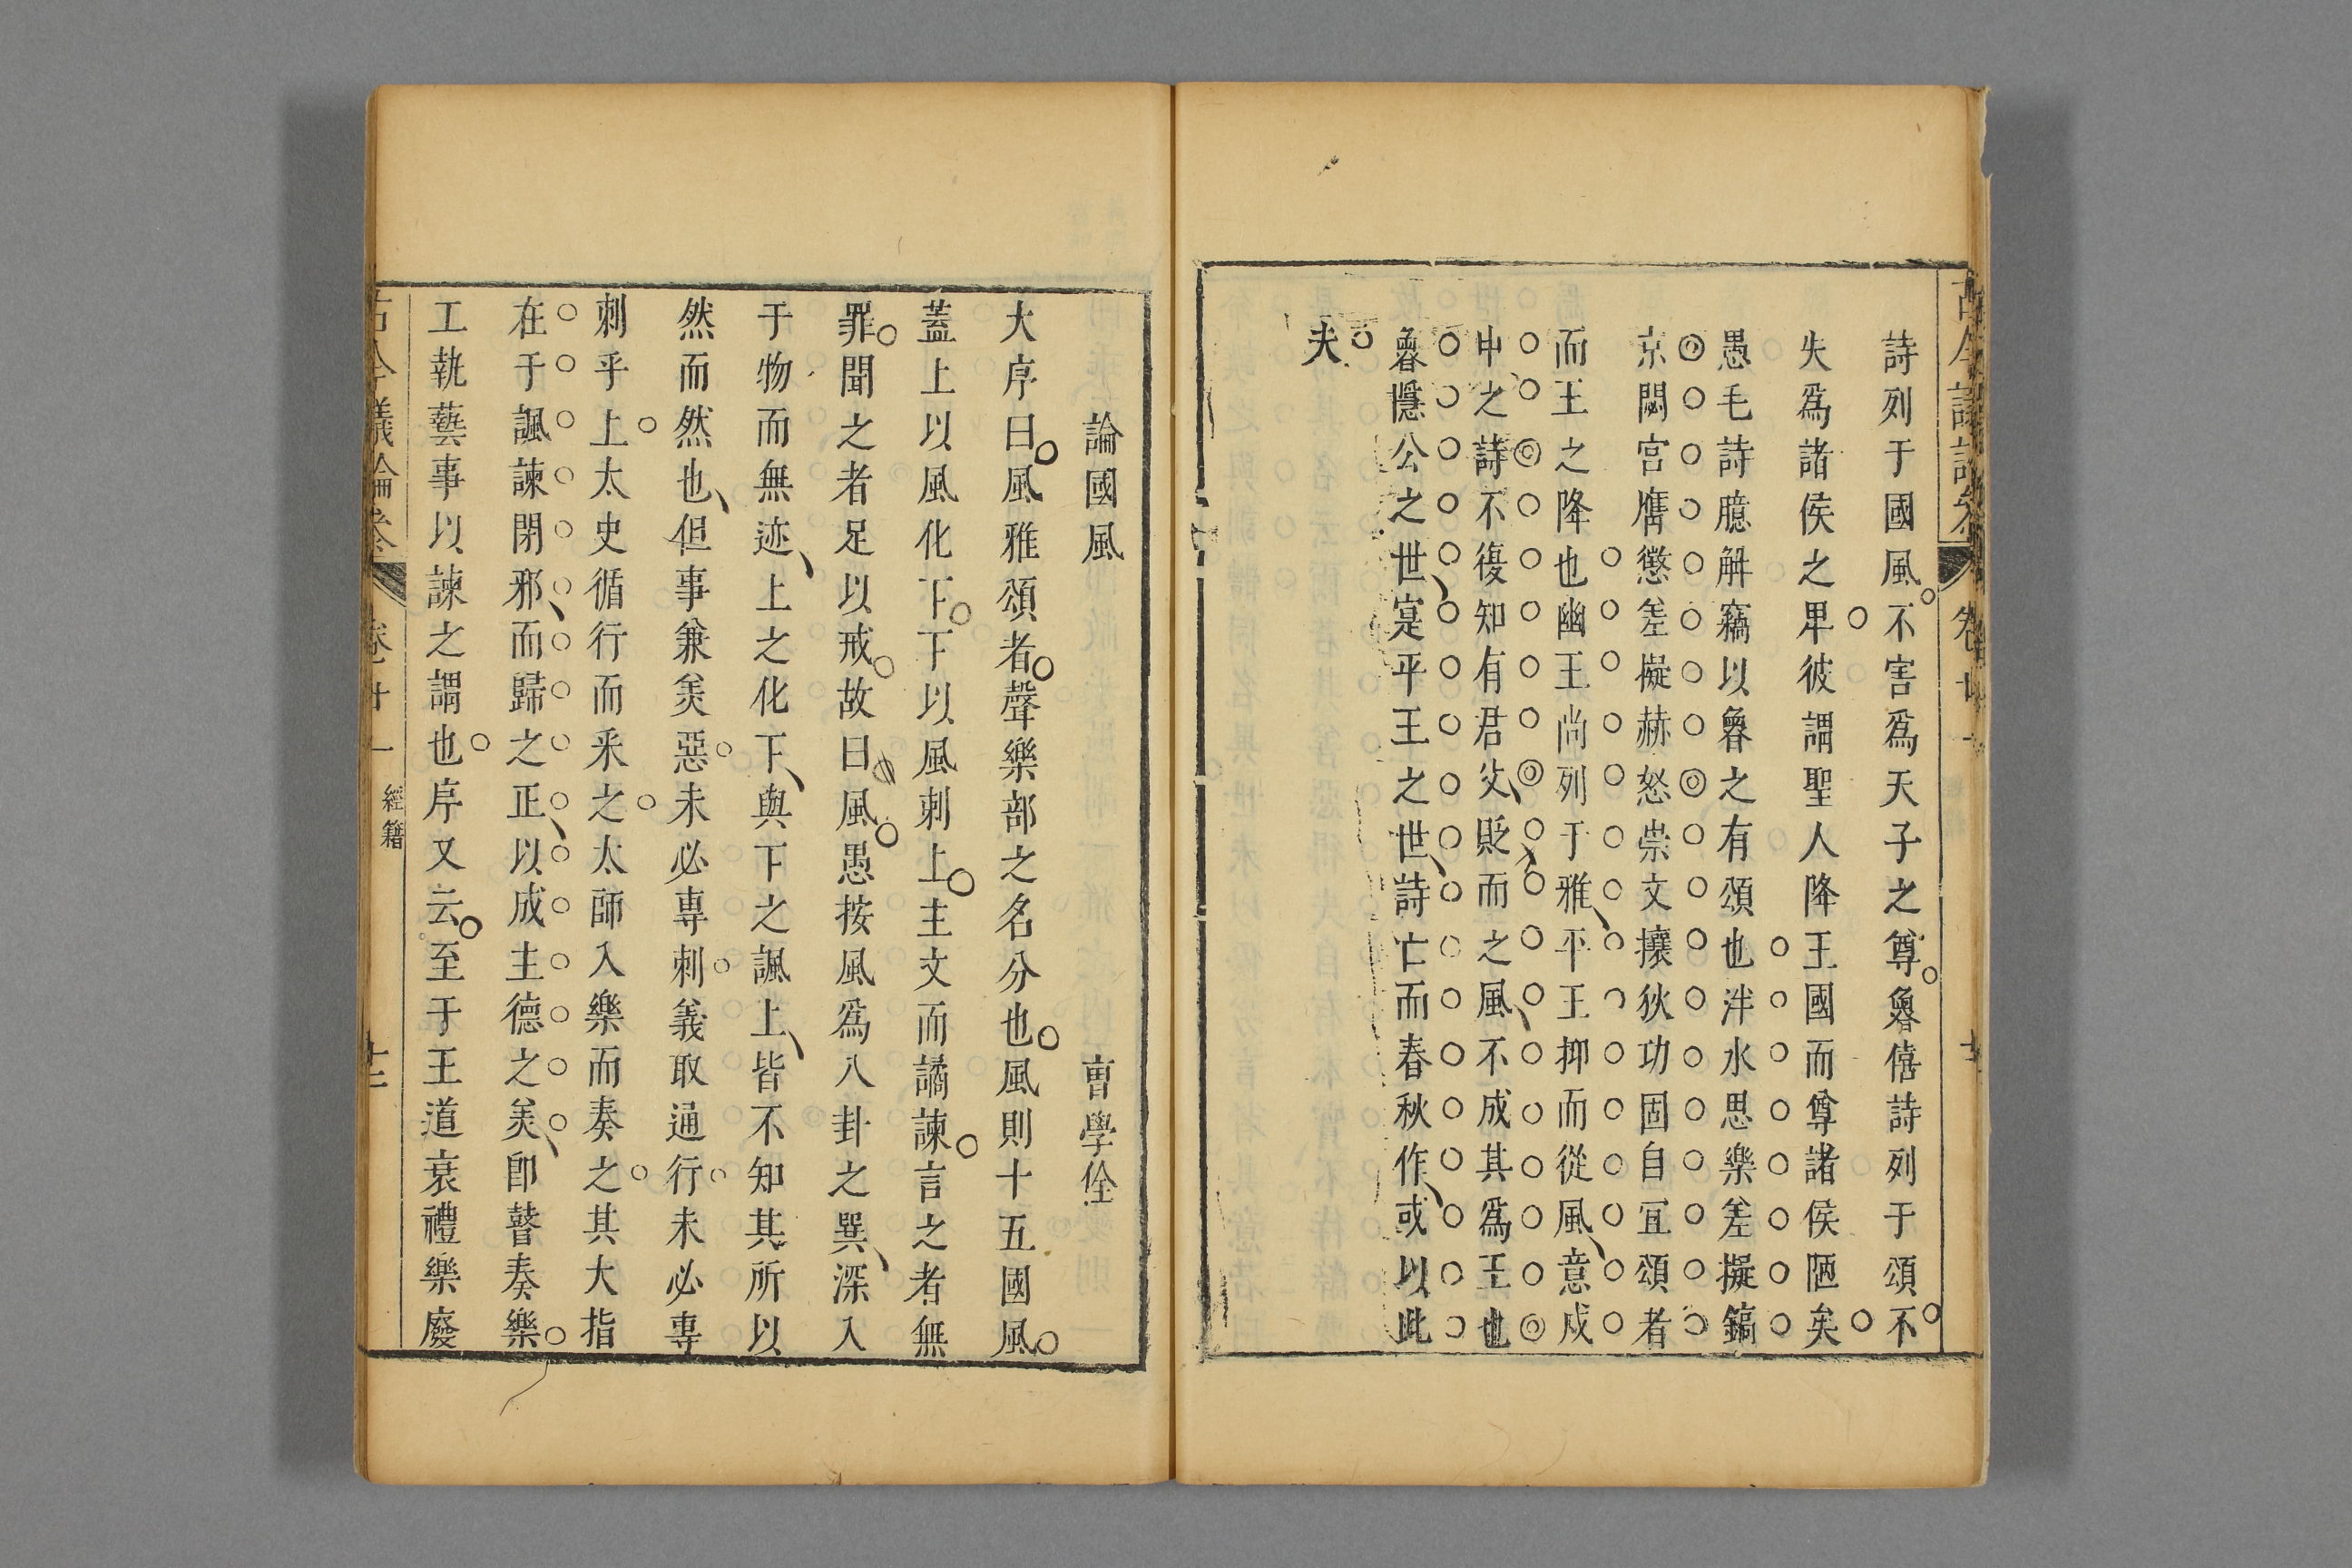 詩列于國風不害爲天子之尊魯僖詩列于頌不
失爲諸侯之卑彼謂聖人降王國而尊諸侯陋矣
愚毛詩臆解竊以魯之有頌也泮水思樂差擬鎬
京閟宫膺懲差擬赫怒崇文攘狄功固自宜頌者
而王之降也幽王尚列于雅平王抑而從風意戍
申之詩不復知有君父貶而之風不成其爲王也
魯隱公之世寔平王之世詩亡而春秋作或以此
夫
論國風 曹學佺
大序曰風雅頌者聲樂部之名分也風則十五國風
蓋上以風化下下以風刺上主文而譎諫言之者無
罪聞之者足以戒故曰風愚按風爲八卦之巽深入
于物而無迹上之化下與下之諷上皆不知其所以
然而然也但事兼美惡未必專刺義取通行未必專
刺乎上太史循行而采之太師入樂而奏之其大指
在于諷諫閉邪而歸之正以成主德之美卽瞽奏樂
工執藝事以諫之謂也序又云至于王道衰禮樂廢
古今議論叅 卷廿一 經籍 十二